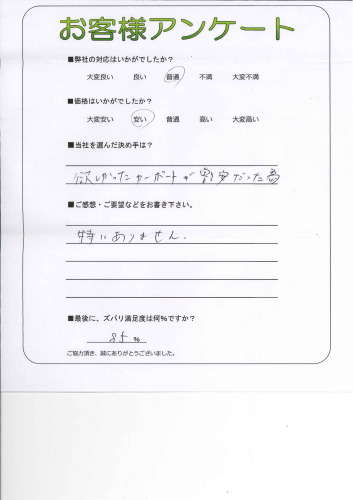 お客様アンケート
■弊社の対応はいかがでしたか?
大変良い 良い 普通 不満 大変不満
■価格はいかがでしたか?
大変安い 安い 普通 高い 大変高い
■当社を選んだ決め手は?
欲しかったカーポートが割安だった為
■ご感想・ご要望などをお書き下さい。
特にありません.
■最後に、ズバリ満足度は何%ですか?
85 %
ご協力頂き、誠にありがとうございました。